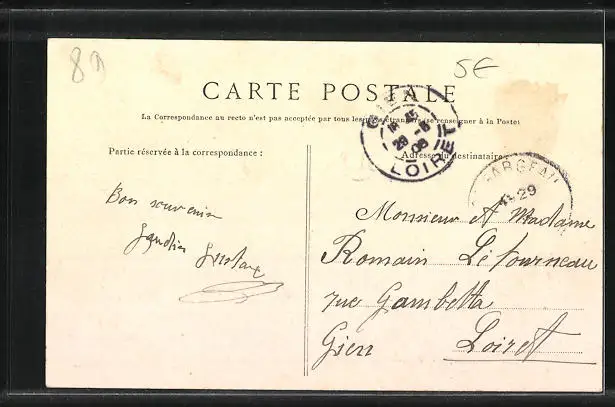 8
5€
CARTE POSTALE
La Correspondance au recto n'est pas acceptée par tous les pays étrangers (se renseigner à la Poste)
Partie réservée à la correspondance :
Adresse du destinataire
GIEN
15
28 -5
08
LOIRET
JARGEAU
29
Bon souvenir
Monsieur & Madame
Romain Létourneau
rue Gambetta
Gien Loiret